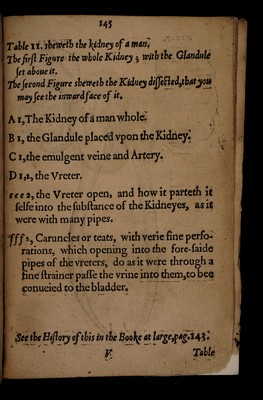 145
Table 11. sheweth the kidney of a man.
The first Figure the whole Kidney ; with the Glandule
set aboue it.
The second Figure sheweth the Kidney dissected, that you
may see the inward face of it.
A 1, The Kidney of a man whole.
B 1, the Glandule placed vpon the Kidney.
C 1, the emulgent veine and Artery.
D 1,2, the Vreter.
eeee 2, the Vreter open, and how it parteth it
selfe into the substance of the Kidneyes, as it
were with many pipes.
fff 2, Caruncles or teats, with verie fine perfo-
rations, which opening into the fore-saide
pipes of the vreters, do as it were through a
fine strainer passe the vrine into them, to bee
conueied to the bladder.
See the History of this in the Booke at large, pag. 143.
V. Table